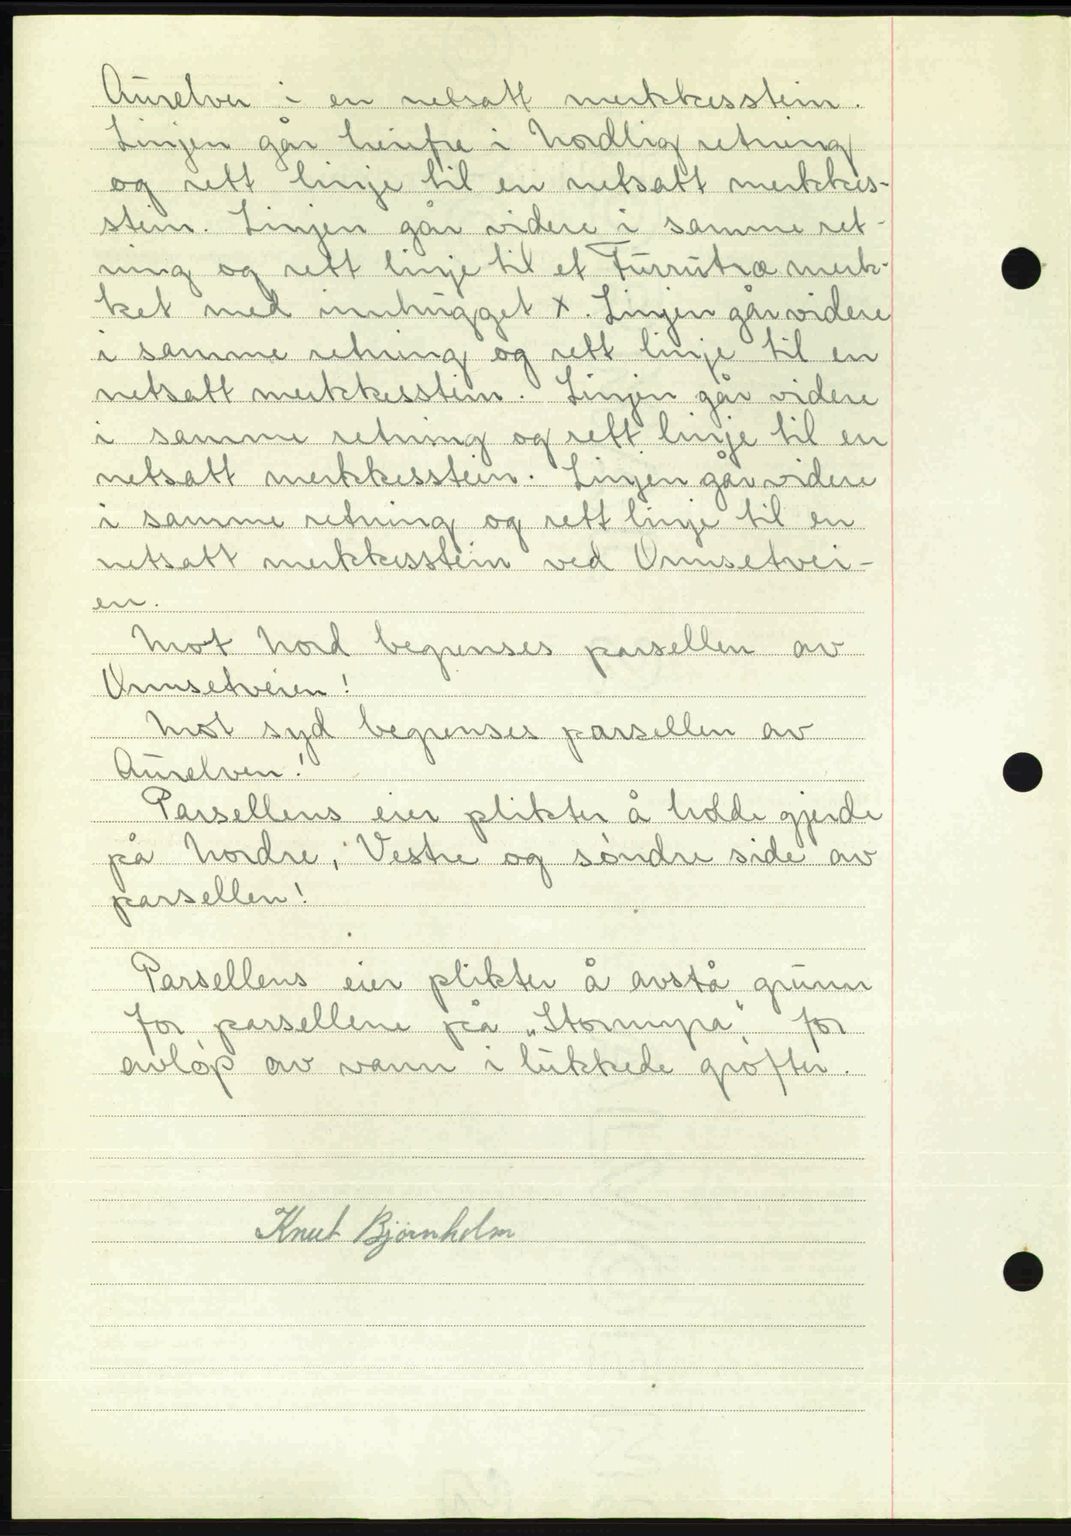 Aurelven i en netsatt merkkesstein.
Linjen går herifra i Nordlig retning
og rett linje til en netsatt merkkes-
stein. Linjen går videre i samme ret-
ning og rett linje til et Furrutræ merk-
ket med innhugget x. Linjen går videre
i samme retning og rett linje til en
netsatt merkkesstein. Linjen går videre
i samme retning og rett linje til en
netsatt merkkesstein. Linjen går videre
i samme retning og rett linje til en
netsatt merkkesstein ved Ormsetvei-
en.
Mot Nord begrenses parsellen av
Ormsetveien!
Mot syd begrenses parsellen av
Aurelven!
Parsellens eier plikter å holde gjerde
på Nordre, Vestre og søndre side av
parsellen!
Parsellens eier plikter å avstå grunn
for parsellene på „Stormyra" for
avløp av vann i lukkede grøfter.
Knut Bjørnholm